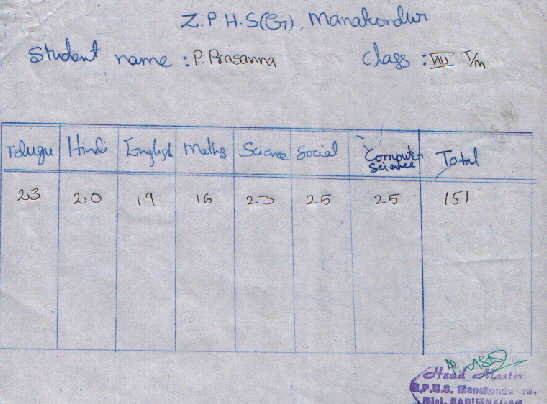 Z.P.H.S(G), Manakondur
Student name : P. Prasanna Class : VIII T/m
Telugu Hindi English Maths Science Social Computer Science Total
23 20 19 16 23 25 25 151
Head Master
Z.P.H.S. Manakondur,
Dist. KARIMNAGAR